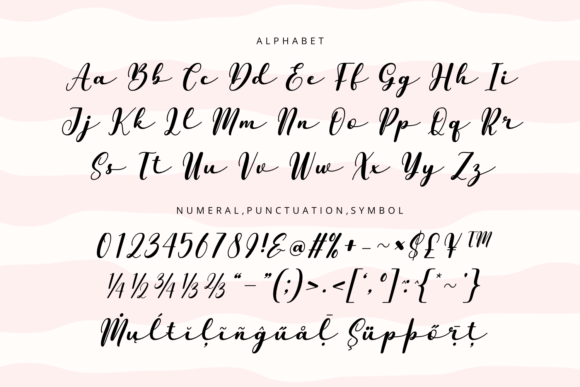 ALPHABET
Aa Bb Cc Dd Ee Ff Gg Hh Ii
Jj Kk Ll Mm Nn Oo Pp Qq Rr
Ss Tt Uu Vv Ww Xx Yy Zz
NUMERAL,PUNCTUATION,SYMBOL
0123456789!&@#%+-~×$£¥™
¼½¾⅓⅔“–”(;)>.<[‘,°]:¨^{*~'}
Ṁụĺťıļĩñĝűåḹ Şüṗṗőṝṭ